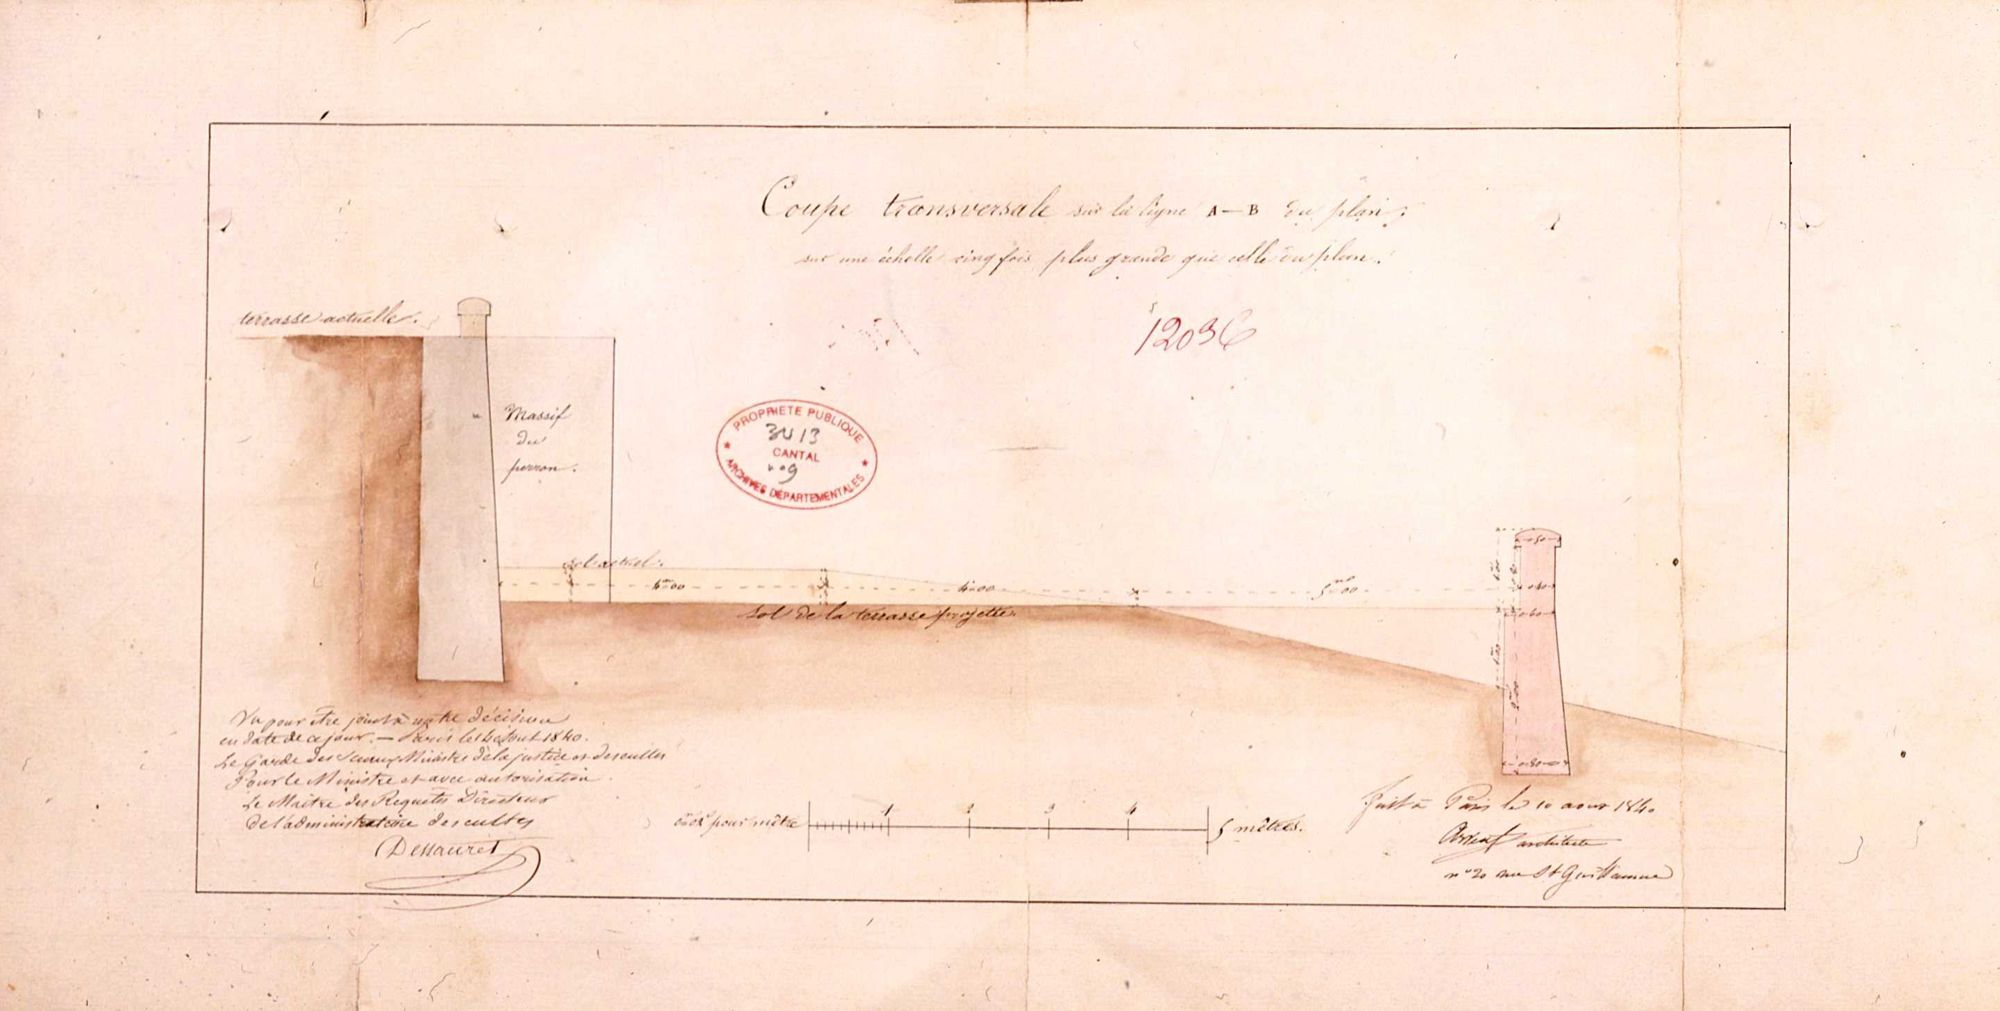 Coupe transversale sur la ligne A — B du plan,
sur une échelle cinq fois plus grande que celle du plan.
terrasse actuelle.
12036
Massif
du
perron.
PROPRIETE PUBLIQUE
3V13
CANTAL
n°9
ARCHIVES DÉPARTEMENTALES
sol actuel.
4m00
4m00
5m00
sol de la terrasse projettée.
0.50
0.40
0.60
0.80
Vu pour être joint à notre décision
en date de ce jour. — Paris le Août 1840.
Le Garde des Sceaux Ministre de la justice et des cultes
Pour le Ministre et avec autorisation.
Le Maître des Requêtes Directeur
de l'administration des cultes
Dessauret
pour mètre
1 2 3 4 5 mètres.
Fait à Paris le 10 aout 1840
architecte
n° 20 rue St Guillaume